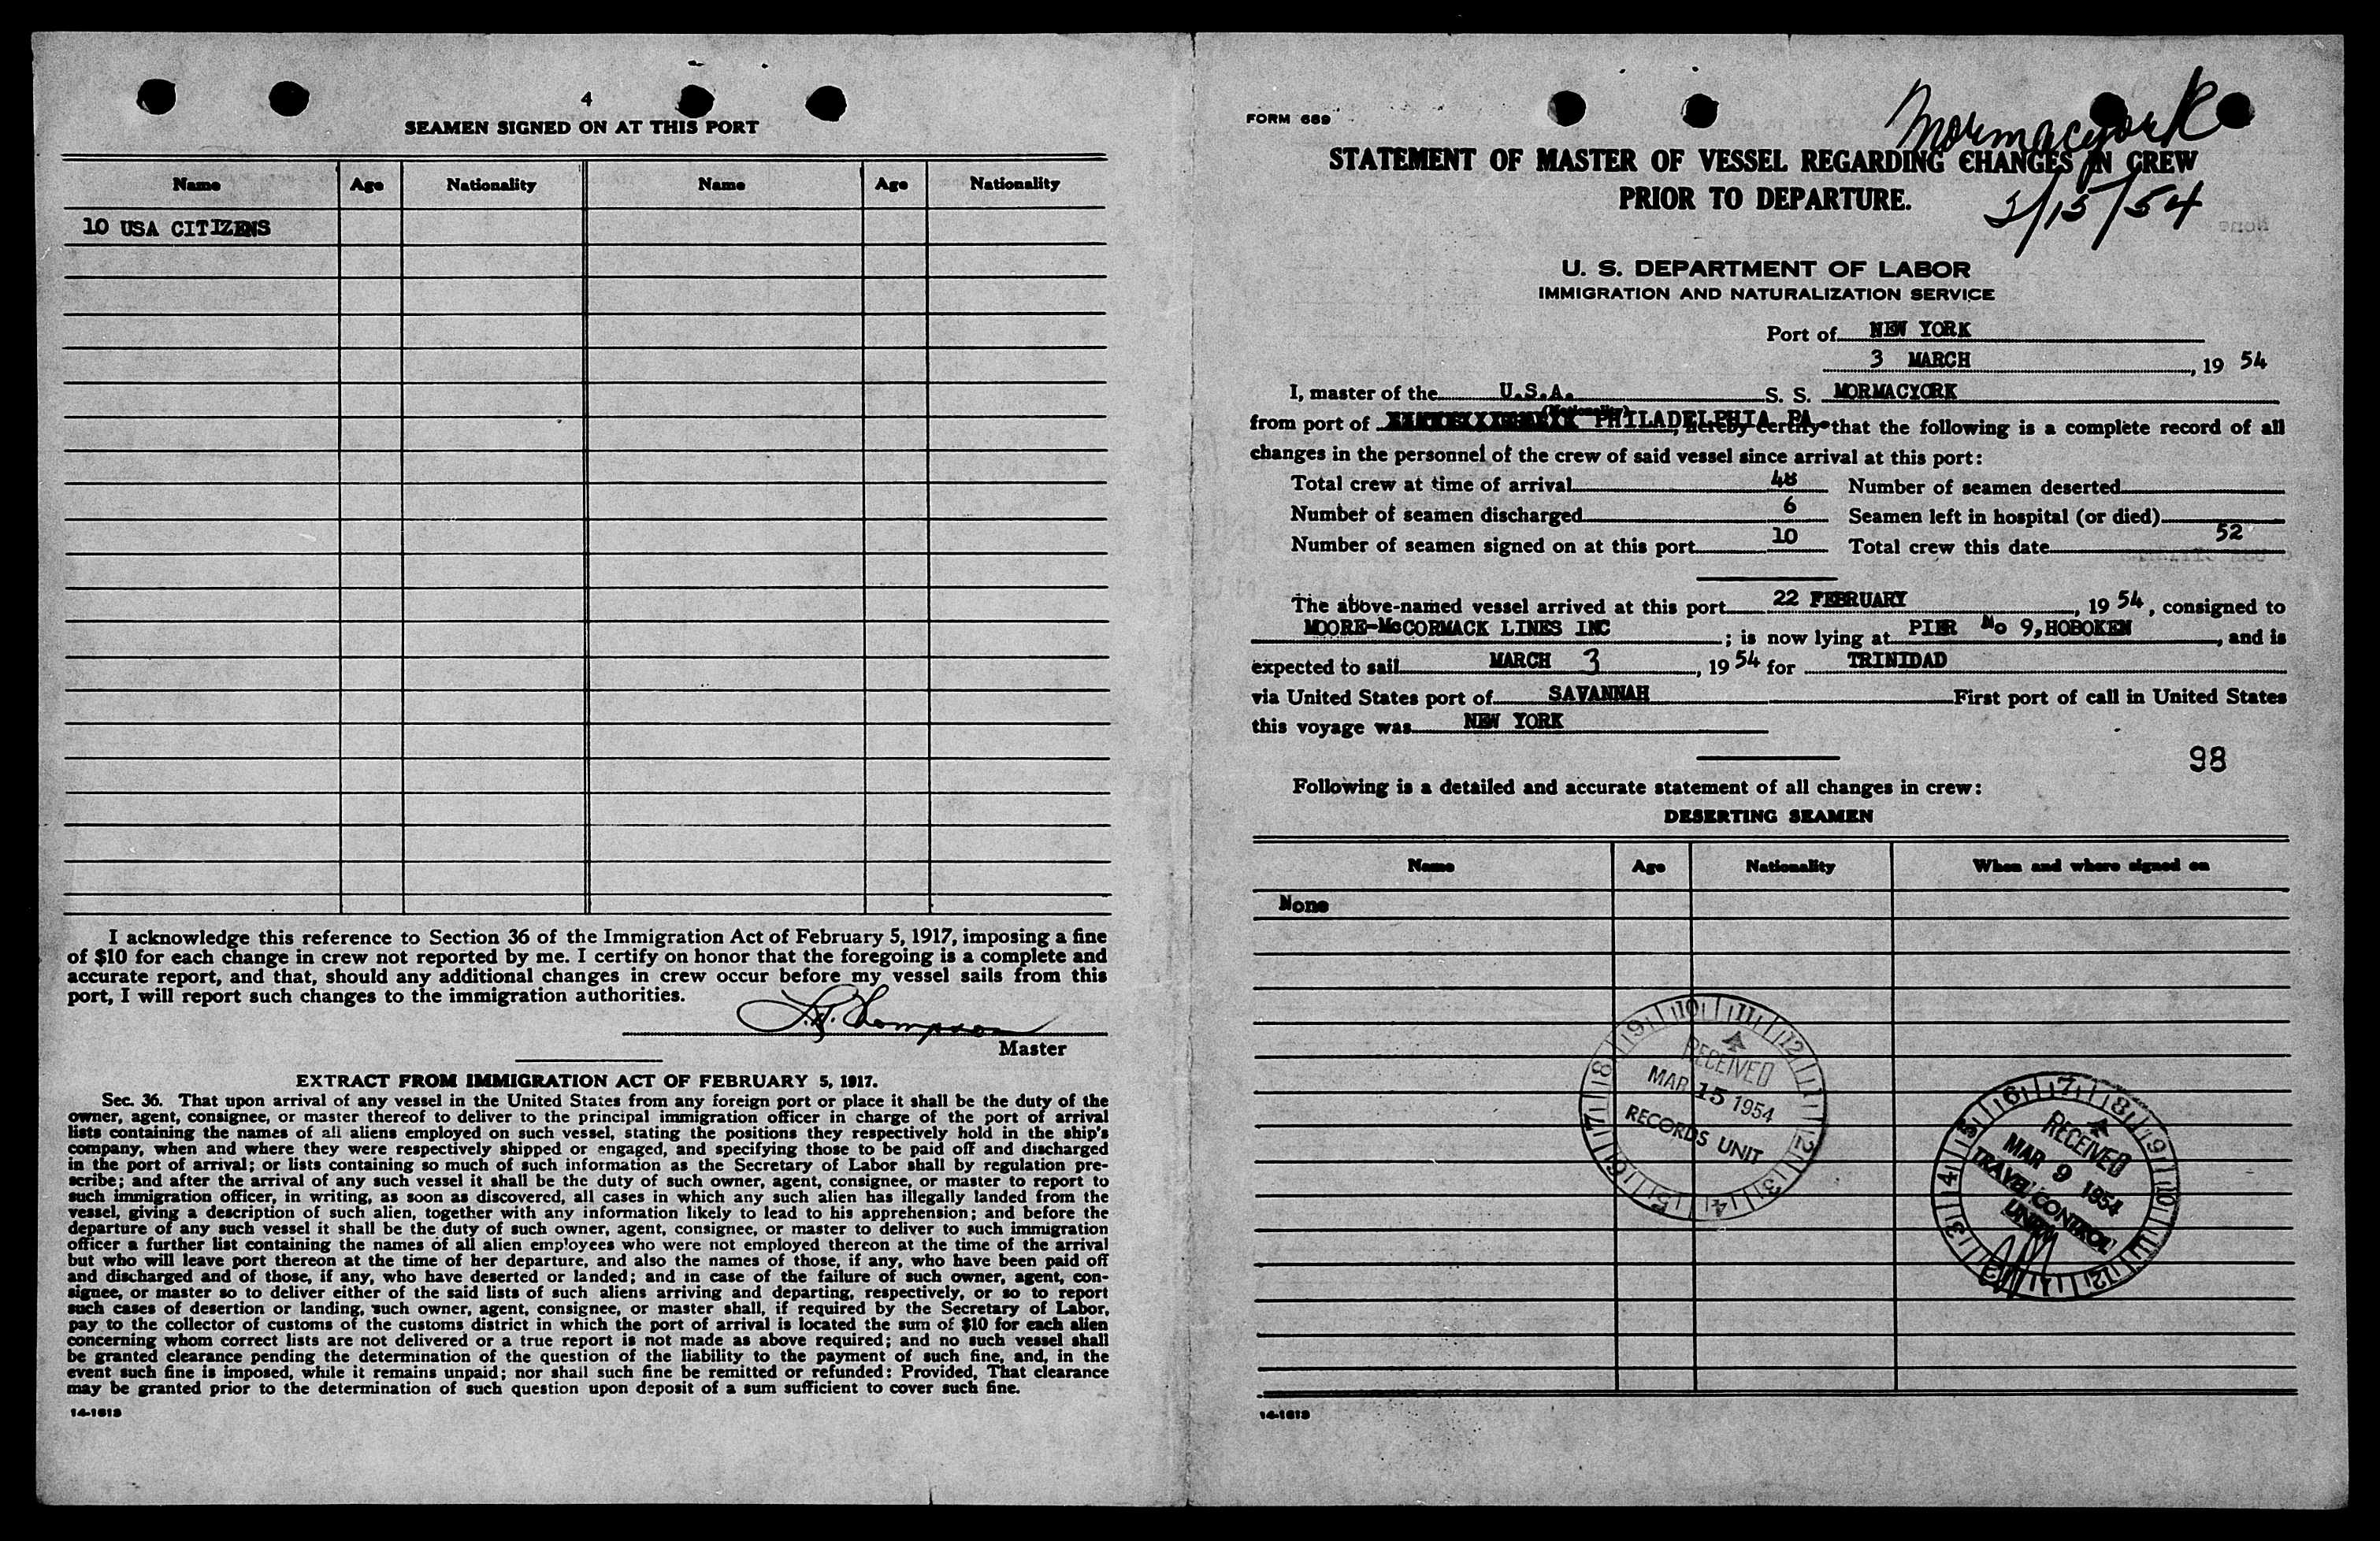 4
SEAMEN SIGNED ON AT THIS PORT
Name Age Nationality Name Age Nationality
10 USA CITIZENS
I acknowledge this reference to Section 36 of the Immigration Act of February 5, 1917, imposing a fine
of $10 for each change in crew not reported by me. I certify on honor that the foregoing is a complete and
accurate report, and that, should any additional changes in crew occur before my vessel sails from this
port, I will report such changes to the immigration authorities.
Thompson
Master
EXTRACT FROM IMMIGRATION ACT OF FEBRUARY 5, 1917.
Sec. 36. That upon arrival of any vessel in the United States from any foreign port or place it shall be the duty of the
owner, agent, consignee, or master thereof to deliver to the principal immigration officer in charge of the port of arrival
lists containing the names of all aliens employed on such vessel, stating the positions they respectively hold in the ship's
company, when and where they were respectively shipped or engaged, and specifying those to be paid off and discharged
in the port of arrival; or lists containing so much of such information as the Secretary of Labor shall by regulation pre-
scribe; and after the arrival of any such vessel it shall be the duty of such owner, agent, consignee, or master to report to
such immigration officer, in writing, as soon as discovered, all cases in which any such alien has illegally landed from the
vessel, giving a description of such alien, together with any information likely to lead to his apprehension; and before the
departure of any such vessel it shall be the duty of such owner, agent, consignee, or master to deliver to such immigration
officer a further list containing the names of all alien employees who were not employed thereon at the time of the arrival
but who will leave port thereon at the time of her departure, and also the names of those, if any, who have been paid off
and discharged and of those, if any, who have deserted or landed; and in case of the failure of such owner, agent, con-
signee, or master so to deliver either of the said lists of such aliens arriving and departing, respectively, or so to report
such cases of desertion or landing, such owner, agent, consignee, or master shall, if required by the Secretary of Labor,
pay to the collector of customs of the customs district in which the port of arrival is located the sum of $10 for each alien
concerning whom correct lists are not delivered or a true report is not made as above required; and no such vessel shall
be granted clearance pending the determination of the question of the liability to the payment of such fine, and, in the
event such fine is imposed, while it remains unpaid; nor shall such fine be remitted or refunded: Provided, That clearance
may be granted prior to the determination of such question upon deposit of a sum sufficient to cover such fine.
14-1613
FORM 689
Mormacyork
STATEMENT OF MASTER OF VESSEL REGARDING CHANGES IN CREW
PRIOR TO DEPARTURE.
3/15/54
U. S. DEPARTMENT OF LABOR
IMMIGRATION AND NATURALIZATION SERVICE
Port of NEW YORK
3 MARCH, 19 54
I, master of the U.S.A. S. S. MORMACYORK
(Nationality)
from port of PHILADELPHIA PA., hereby certify that the following is a complete record of all
changes in the personnel of the crew of said vessel since arrival at this port:
Total crew at time of arrival 48 Number of seamen deserted
Number of seamen discharged 6 Seamen left in hospital (or died)
Number of seamen signed on at this port 10 Total crew this date 52
The above-named vessel arrived at this port 22 FEBRUARY, 19 54, consigned to
MOORE-McCORMACK LINES INC; is now lying at PIER No 9, HOBOKEN, and is
expected to sail MARCH 3, 19 54 for TRINIDAD
via United States port of SAVANNAH First port of call in United States
this voyage was NEW YORK
98
Following is a detailed and accurate statement of all changes in crew:
DESERTING SEAMEN
Name Age Nationality When and where signed on
None
RECEIVED
MAR 15 1954
RECORDS UNIT
RECEIVED
MAR 9 1954
TRAVEL CONTROL
14-1613